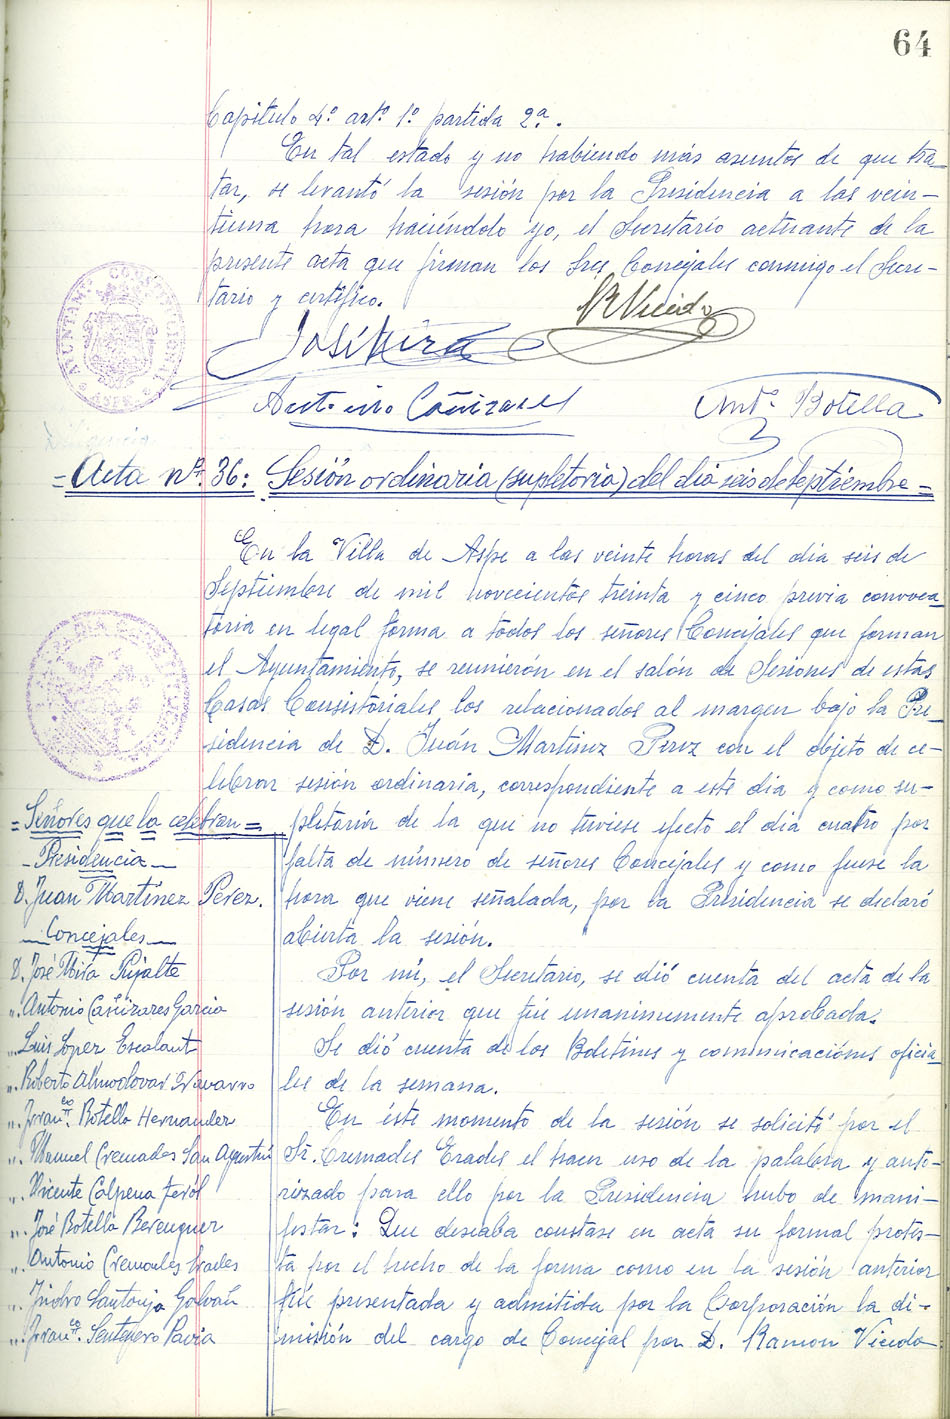 64
Capitulo 4º artº 1º partida 2ª.
En tal estado y no habiendo más asuntos de que tra-
tar, se levantó la sesión por la Presidencia a las vein-
tiuna hora haciéndolo yo, el Secretario actuante de la
presente acta que firman los Sres Concejales conmigo el Secre-
tario y certifico.
R Vicedo
José Mira
Antonio Cañizares
Antº Botella
AYUNTAMTO CONSTITUCIONAL
ASPE
Diligencia
=Acta nº. 36: Sesión ordinaria (supletoria) del dia seis de septiembre=
En la Villa de Aspe a las veinte horas del dia seis de
Septiembre de mil novecientos treinta y cinco previa convoca-
toria en legal forma a todos los señores Concejales que forman
el Ayuntamiento, se reunierón en el salón de Sesiones de estas
Casas Consistoriales los relacionados al margen bajo la Pre-
sidencia de D. Juán Martinez Perez con el objeto de ce-
lebrar sesión ordinaria, correspondiente a este dia y como su-
pletoria de la que no tuviese efecto el dia cuatro por
falta de número de señores Concejales y como fuese la
hora que viene señalada, por la Presidencia se declaró
abierta la sesión.
Por mi, el Secretario, se dió cuenta del acta de la
sesión anterior que fué unanimemente aprobada.
Se dió cuenta de los Boletines y comunicaciónes oficia-
les de la semana.
En éste momento de la sesión se solicitó por el
Sr. Cremades Erades el hacer uso de la palabra y auto-
rizado para ello por la Presidencia hubo de mani-
festar: Que deseaba constase en acta su formal protes-
ta por el hecho de la forma como en la sesión anterior
fué presentada y admitida por la Corporación la di-
misión del cargo de Concejal por D. Ramon Vicedo
=Señores que la celebran=
-Presidencia-
D. Juan Martínez Pérez.
-Concejales-
D. José Mira Pujalte
". Antonio Cañizares Garcia
". Luis Lopez Escalant
". Roberto Almodovar Navarro
". Franco Botella Hernandez
". Manuel Cremades San Agustín
". Vicente Calpena Feról
". José Botella Berenguer
". Antonio Cremades Erades
". Isidro Santonja Galvañ
". Franco Sentenero Pavia